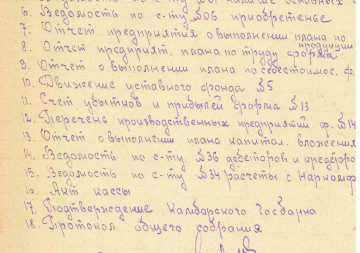 6. Ведомость по с-ту §06 приобретенье
7. Отчет предприятия о выполнении плана по продукции
8. Отчет предприят. плана по труду форма
9. Отчет о выполнении плана по себестоимос. ф.
10. Движение уставного фонда §5
11. Счет убытков и прибылей форма §13
12. Перечень производственных предприятий ф. §14
13. Отчет о выполнении плана капитал. вложения
14. Ведомость по с-ту. §36 дебеторов и кредеторо
15. Ведомость по с-ту §34 расчеты с Наркомф
16. Акт кассы
17. Подтверждение Камборского Госбанка
18. Протокол общего собрания